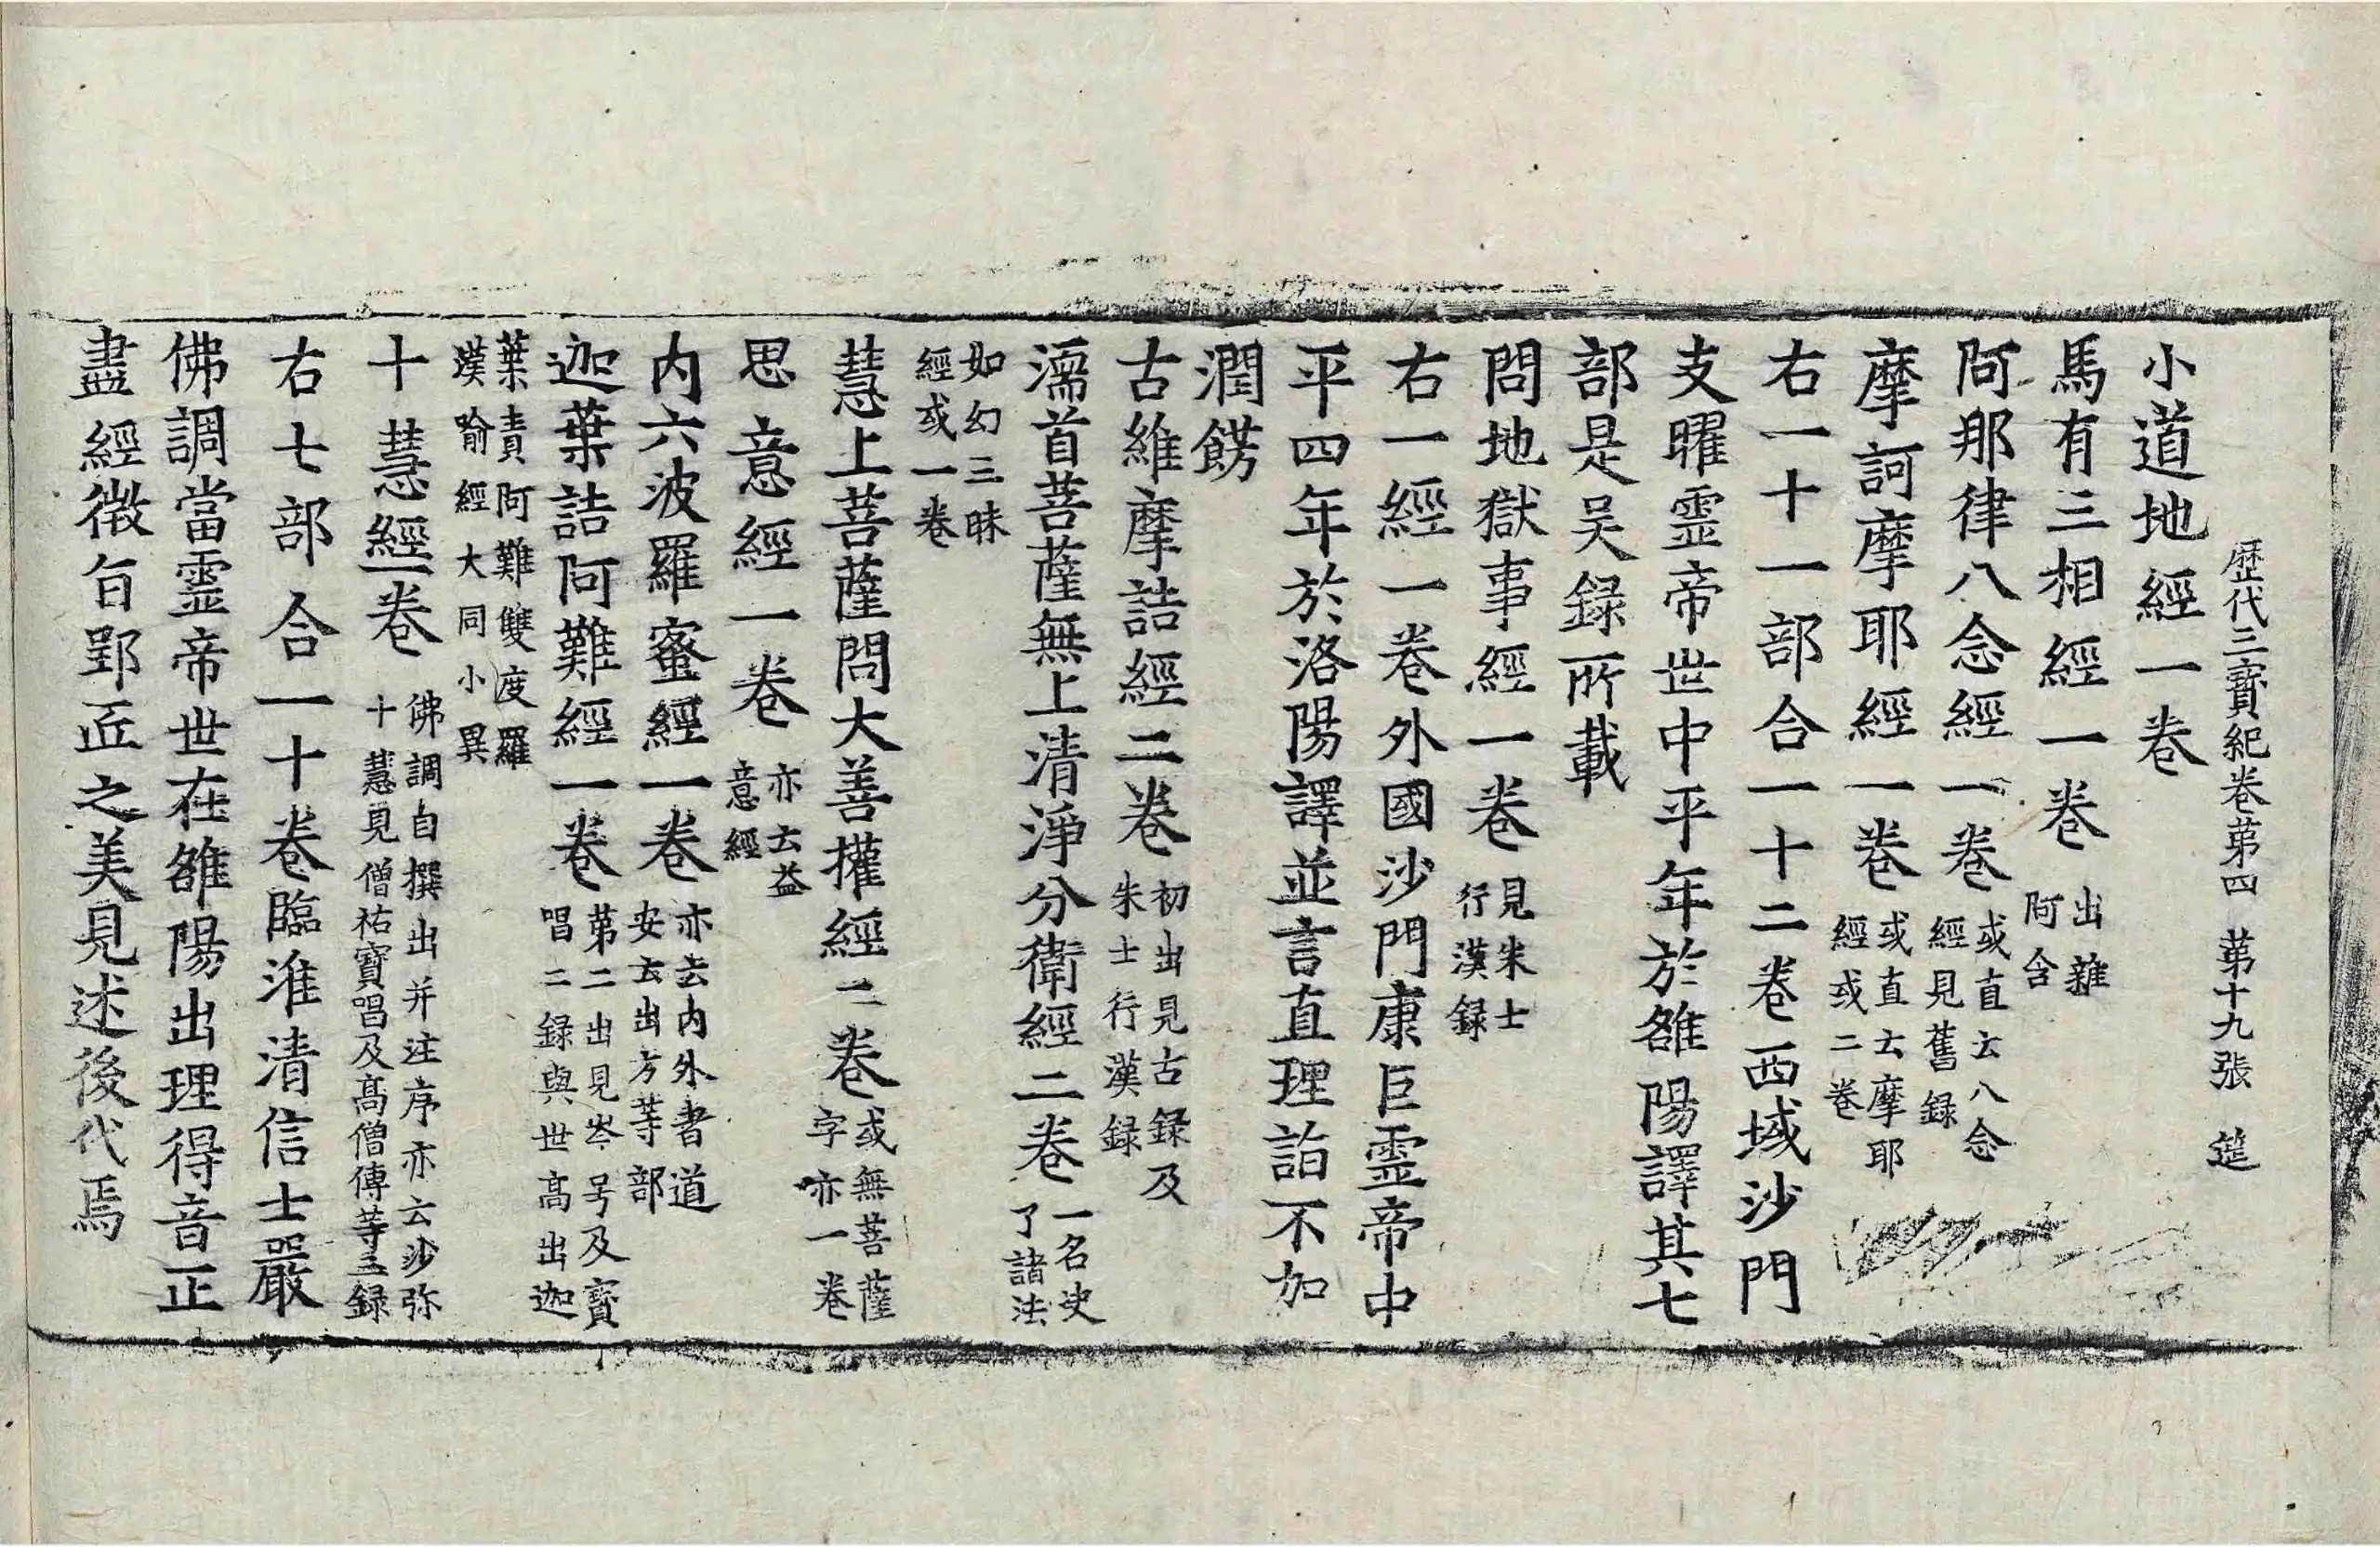 歷代三寶紀卷第四 第十九張 筵
小道地經一卷
馬有三相經一卷 出雜阿含
阿那律八念經一卷 或直云八念經見舊録
摩訶摩耶經一卷 或直云摩耶經或二卷
右一十一部合一十二卷西域沙門
支曜靈帝世中平年於雒陽譯其七
部是吴録所載
問地獄事經一卷 見朱士行漢録
右一經一卷外國沙門康巨靈帝中
平四年於洛陽譯並言直理詣不加
潤餝
古維摩詰經二卷 初出見古録及朱士行漢録
濡首菩薩無上清淨分衛經二卷 一名决了諸法
如幻三昧經或一卷
慧上菩薩問大善權經二卷 或無菩薩字亦一卷
思意經一卷 亦云益意經
内六波羅蜜經一卷 亦云内外書道安云出方等部
迦葉詰阿難經一卷 第二出見岑号及寶唱二録與世高出迦
葉責阿難雙度羅漢喻經大同小異
十慧經一卷 佛調自撰出并注序亦云沙弥十慧見僧祐寶唱及高僧傳等三録
右七部合一十卷臨淮清信士嚴
佛調當靈帝世在雒陽出理得音正
盡經微旨郢匠之美見述後代焉